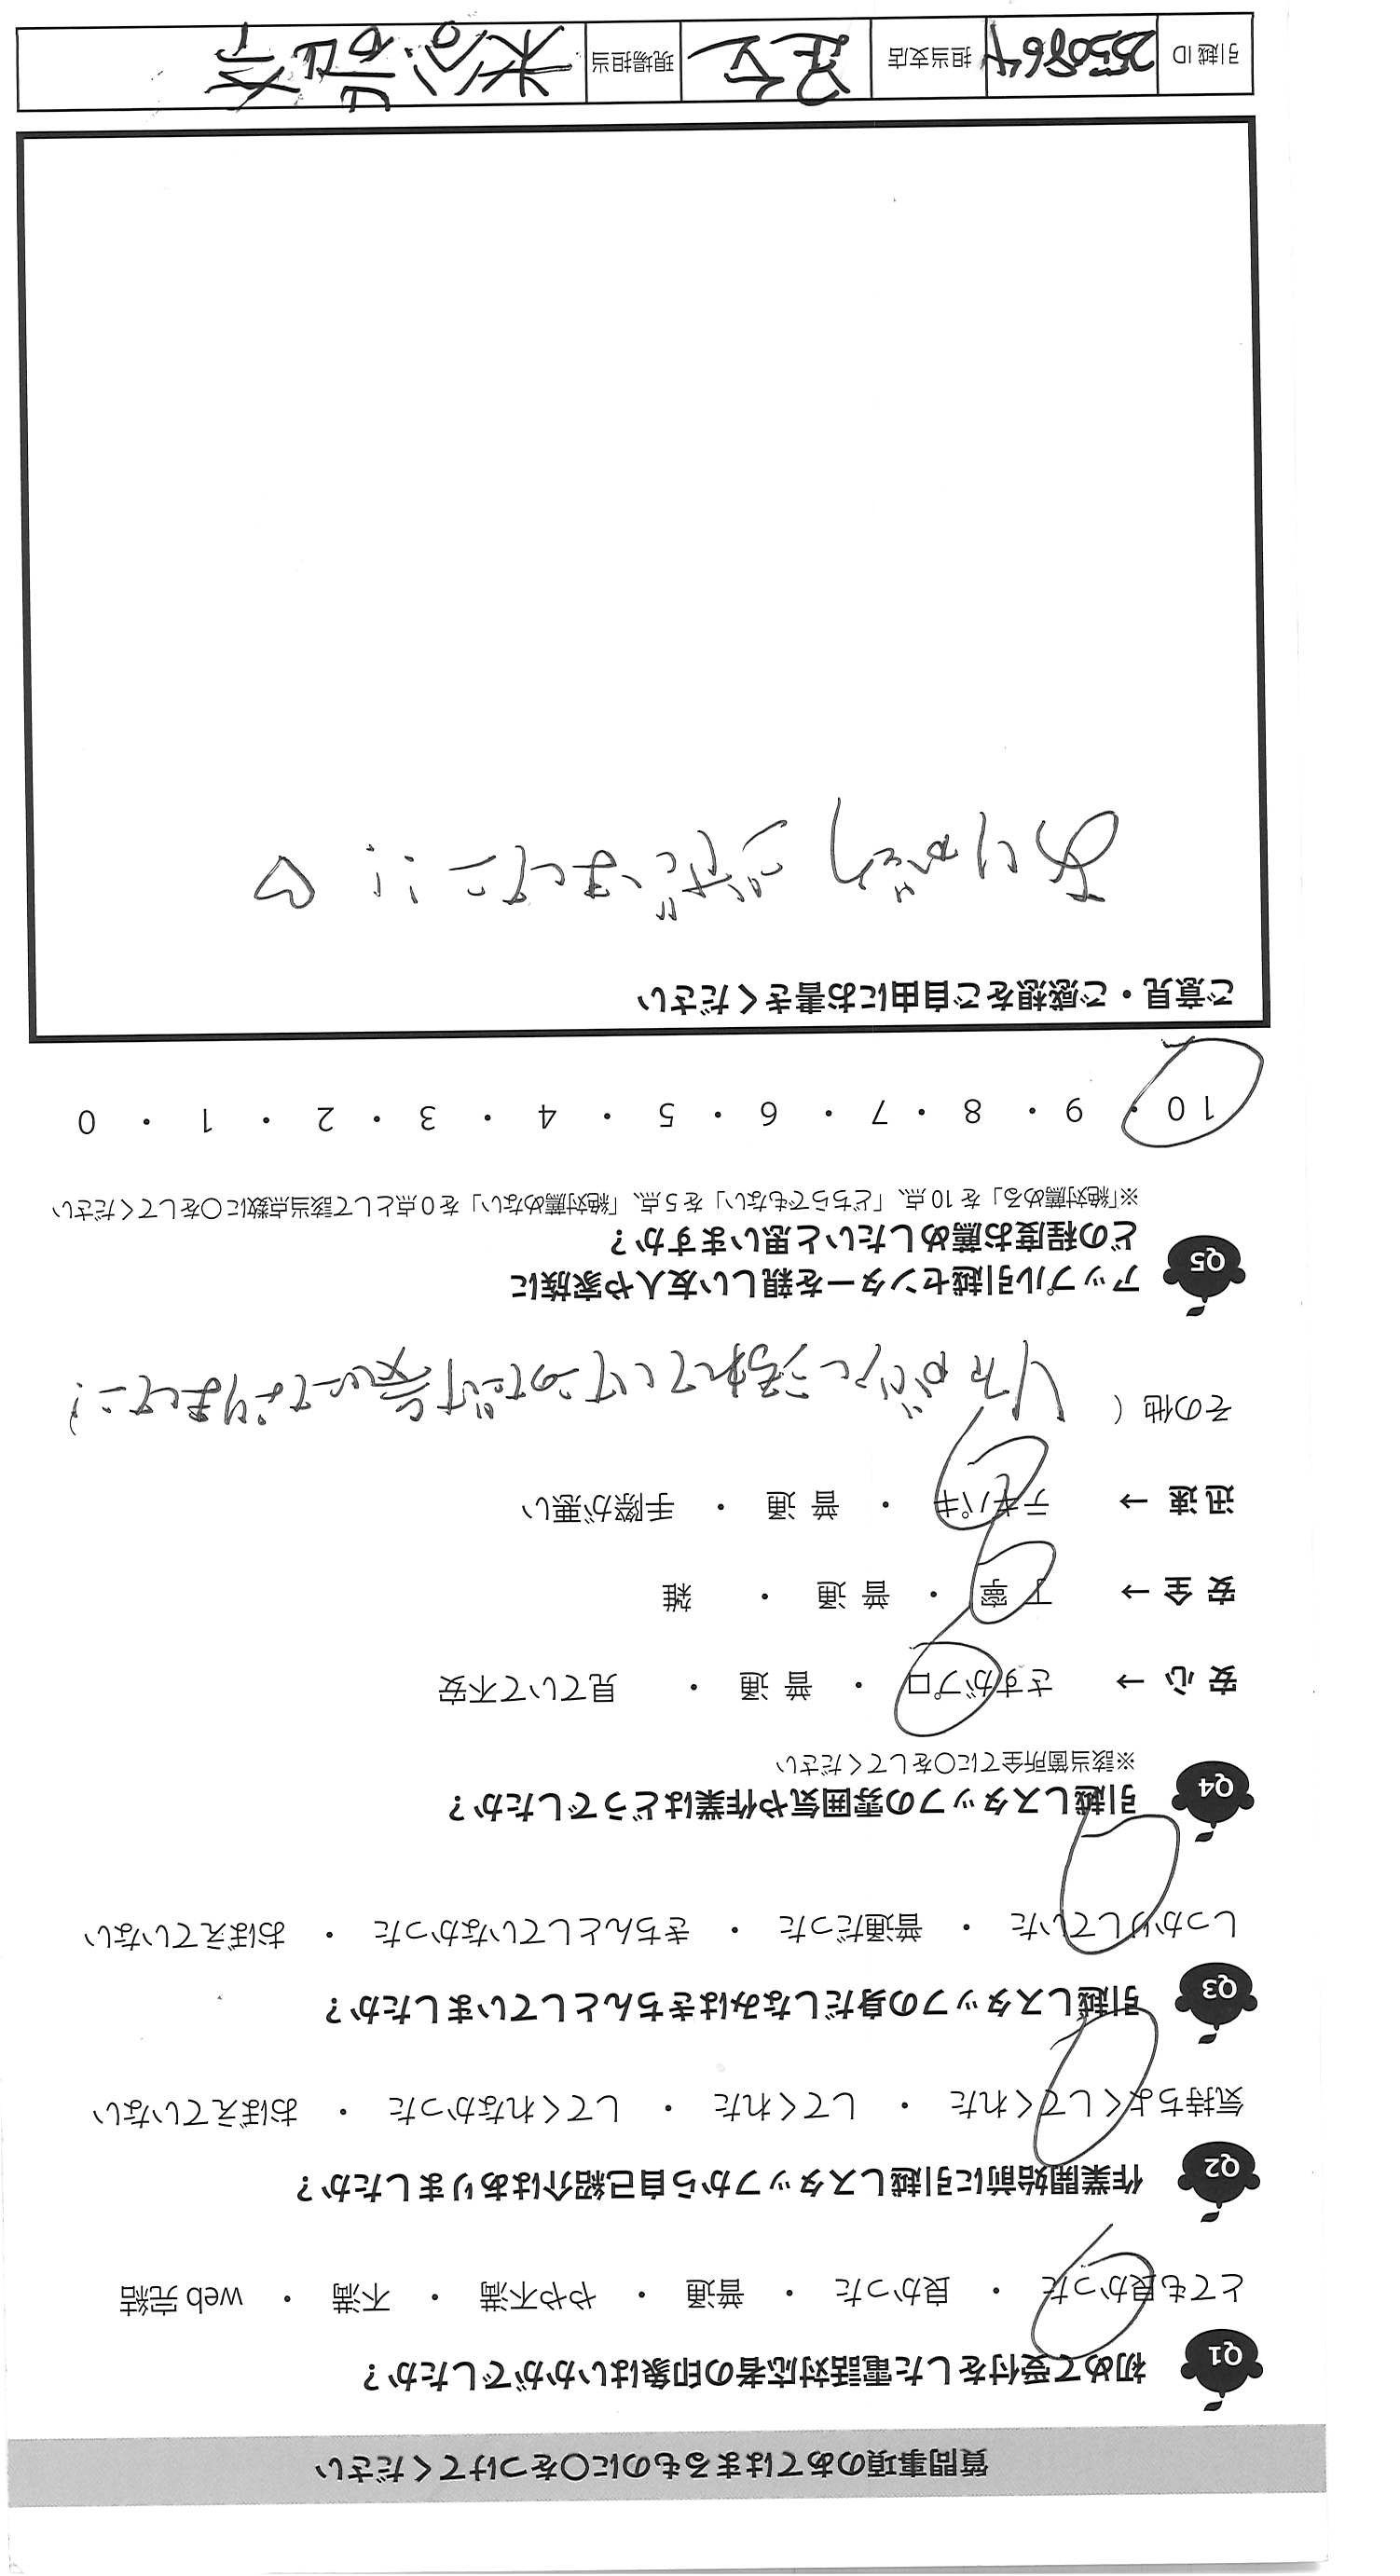 質問事項のあてはまるものに○をつけてください
Q1 初めて受付をした電話対応者の印象はいかがでしたか？
とても良かった ・ 良かった ・ 普通 ・ やや不満 ・ 不満 ・ web完結
Q2 作業開始前に引越しスタッフから自己紹介はありましたか？
気持ちよくしてくれた ・ してくれた ・ してくれなかった ・ おぼえていない
Q3 引越しスタッフの身だしなみはきちんとしていましたか？
しっかりしていた ・ 普通だった ・ きちんとしていなかった ・ おぼえていない
Q4 引越しスタッフの雰囲気や作業はどうでしたか？
※該当箇所全てに○をしてください
安心 → さすがプロ ・ 普通 ・ 見ていて不安
安全 → 丁寧 ・ 普通 ・ 雑
迅速 → テキパキ ・ 普通 ・ 手際が悪い
その他（
Q5 アップル引越センターを親しい友人や家族に
どの程度お薦めしたいと思いますか？
※「絶対薦める」を10点、「どちらでもない」を5点、「絶対薦めない」を0点として該当点数に○をしてください
10 ・ 9 ・ 8 ・ 7 ・ 6 ・ 5 ・ 4 ・ 3 ・ 2 ・ 1 ・ 0
ご意見・ご感想をご自由にお書きください
ありがとうございました!! ♡
引越ID 2550864 担当支店 現場担当